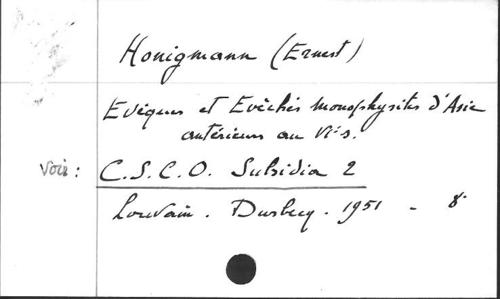 Honigmann (Ernest)
Evêques et Evêchés monophysites d'Asie
antérieure au VIe s.
Voir : C.S.C.O. Subsidia 2
Louvain. Durbecq. 1951 - 8°